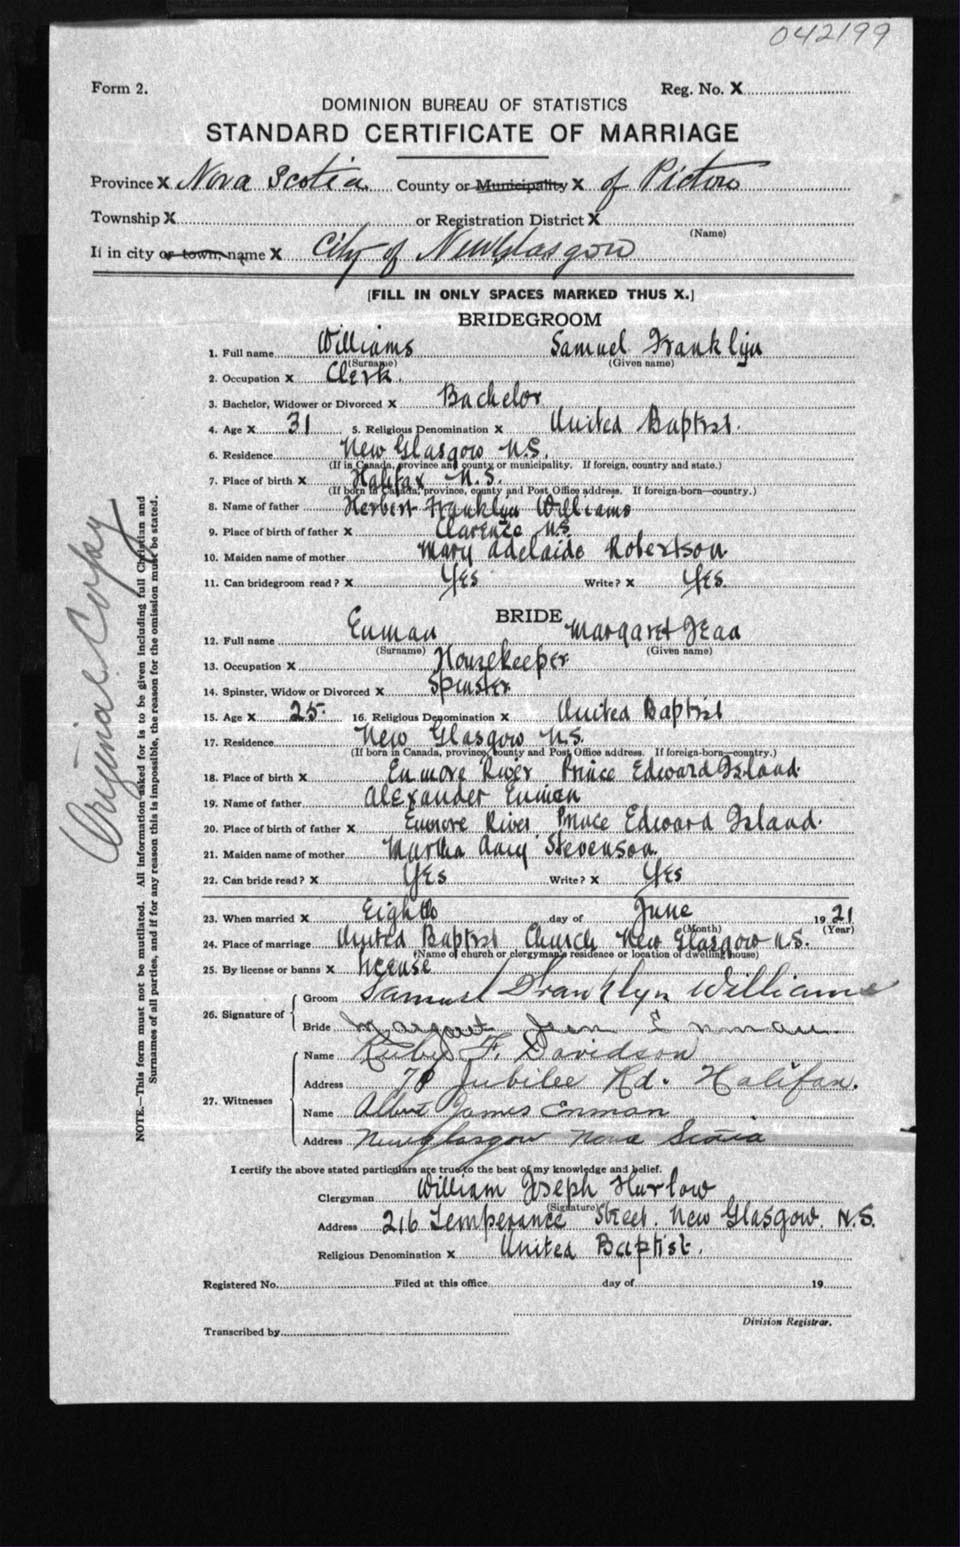 042199
Form 2. Reg. No. X
DOMINION BUREAU OF STATISTICS
STANDARD CERTIFICATE OF MARRIAGE
Province X Nova Scotia County or Municipality X of Pictou
Township X or Registration District X
(Name)
If in city or town, name X City of New Glasgow
[FILL IN ONLY SPACES MARKED THUS X.]
BRIDEGROOM
1. Full name Williams Samuel Franklyn
(Surname) (Given name)
2. Occupation X Clerk.
3. Bachelor, Widower or Divorced X Bachelor
4. Age X 31 5. Religious Denomination X United Baptist.
6. Residence New Glasgow N.S.
(If in Canada, province and county or municipality. If foreign, country and state.)
7. Place of birth X Halifax N.S.
(If born in Canada, province, county and Post Office address. If foreign-born—country.)
8. Name of father Herbert Franklyn Williams
9. Place of birth of father X Clarence N.S.
10. Maiden name of mother Mary Adelaide Robertson
11. Can bridegroom read? X Yes Write? X Yes.
BRIDE
12. Full name Enman Margaret Jean
(Surname) (Given name)
13. Occupation X Housekeeper
14. Spinster, Widow or Divorced X Spinster
15. Age X 25. 16. Religious Denomination X United Baptist
17. Residence New Glasgow N.S.
(If born in Canada, province, county and Post Office address. If foreign-born—country.)
18. Place of birth X Enmore River Prince Edward Island
19. Name of father Alexander Enman
20. Place of birth of father X Enmore River Prince Edward Island.
21. Maiden name of mother Martha Stevenson
22. Can bride read? X Yes Write? X Yes
23. When married X Eighth day of June 1921
(Month) (Year)
24. Place of marriage United Baptist Church New Glasgow N.S.
(Name of church or clergyman's residence or location of dwelling house)
25. By license or banns X License
26. Signature of Groom Samuel Franklyn Williams
Bride Margaret Jean Enman
27. Witnesses Name Ruby F. Davidson
Address 78 Jubilee Rd. Halifax.
Name Albert James Enman
Address New Glasgow Nova Scotia
I certify the above stated particulars are true to the best of my knowledge and belief.
Clergyman William Joseph Hurlow
(Signature)
Address 216 Temperance Street. New Glasgow. N.S.
Religious Denomination X United Baptist.
Registered No. Filed at this office day of 19
Division Registrar.
Transcribed by
Original Copy
NOTE.—This form must not be mutilated. All information asked for is to be given including full Christian and
Surnames of all parties, and if for any reason this is impossible, the reason for the omission must be stated.